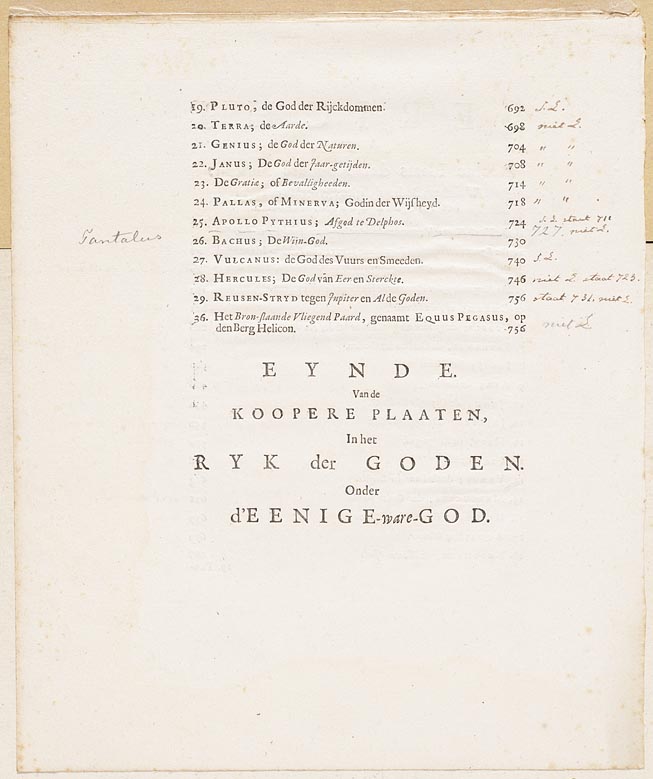 19. PLUTO; de God der Rijckdommen. 692 s. L.
20. TERRA; de Aarde. 698 niet L.
21. GENIUS; de God der Naturen. 704 " "
22. JANUS; De God der Jaar-getijden. 708 " "
23. De Gratiæ; of Bevalligheeden. 714 " "
24. PALLAS, of MINERVA; Godin der Wijsheyd. 718 " "
25. APOLLO PYTHIUS; Afgod te Delphos. 724 s. L. staat 711
Tantalus 727. niet L.
26. BACHUS; De Wijn-God. 730
27. VULCANUS: de God des Vuurs en Smeeden. 740 s L.
28. HERCULES; De God van Eer en Sterckte. 746 niet L staat 723.
29. REUSEN-STRYD tegen Jupiter en Al de Goden. 756 staat 731. niet L.
36. Het Bron-slaande Vliegend Paard, genaamt EQUUS PEGASUS, op
den Berg Helicon. 756 niet L
EYNDE.
Van de
KOOPERE PLAATEN,
In het
RYK der GODEN.
Onder
d'EENIGE-ware-GOD.